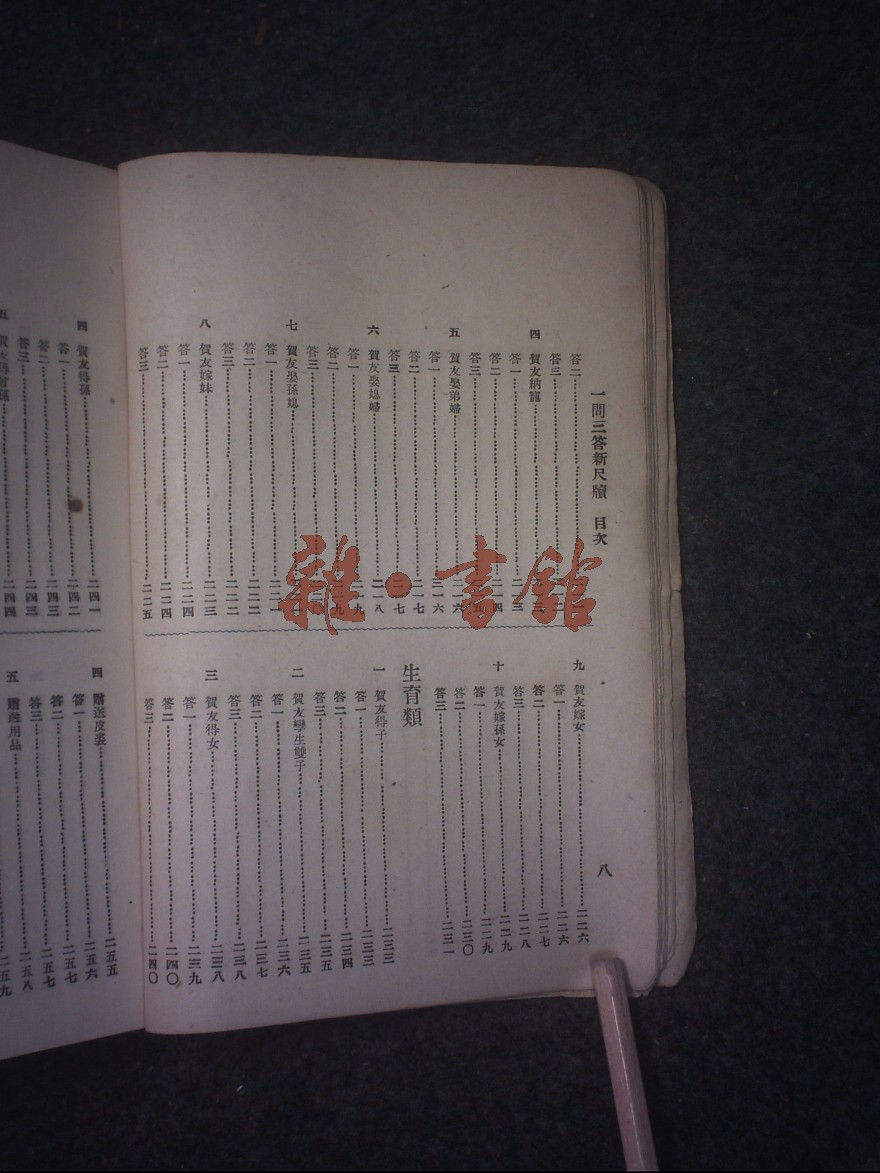 一問三答新尺牘 目次
八
答二
答三
四 賀友納寵
答一
答二
答三
五 賀友娶弟婦
答一……二一六
答二
答三
六 賀友娶媳婦……二一八
答一
答二
答三
七 賀友娶孫媳
答一
答二……二二二
答三……二二二
八 賀友嫁妹……二二三
答一……二二四
答二……二二四
答三……二二五
九 賀友嫁女……二二六
答一……二二六
答二……二二七
答三……二二八
十 賀友嫁孫女……二二九
答一……二二九
答二……二三〇
答三……二三一
生育類
一 賀友得子……二三三
答一……二三三
答二……二三四
答三……二三五
二 賀友孿生雙子……二三五
答一……二三六
答二……二三七
答三……二三八
三 賀友得女……二三八
答一……二三九
答二……二四〇
答三……二四〇
四 賀友得孫……二四一
答一……二四二
答二……二四三
答三……二四三
五 賀友得曾孫……二四四
四 贈送皮裘……二五五
答一……二五六
答二……二五七
答三……二五七
五 贈送用品……二五八
二五九
雜·書館